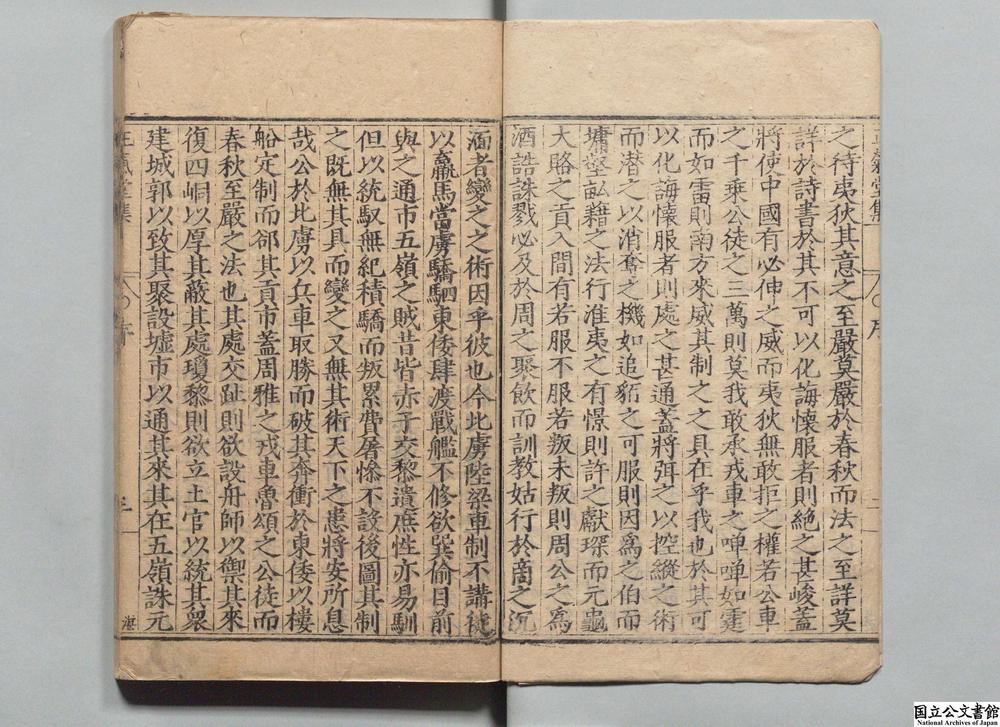 之待夷狄其意之至嚴莫嚴於春秋而法之至詳莫
詳於詩書於其不可以化誨懷服者則絶之甚峻蓋
將使中國有必伸之威而夷狄無敢拒之權若公車
之千乘公徒之三萬則莫我敢承戎車之嘽嘽如霆
而如雷則南方來威其制之之具在乎我也於其可
以化誨懷服者則處之甚通蓋將弭之以控縱之術
而潛之以消奪之機如追貊之可服則因爲之伯而
墉壑畝籍之法行淮夷之有憬則許之獻琛而元龜
大賂之貢入間有若服不服若叛未叛則周公之爲
酒誥誅戮必及於周之聚飲而訓教姑行於商之沉
湎者變之之術因乎彼也今北虜陸梁車制不講徒
以羸馬當虜驕駟東倭肆渡戰艦不修欲巽偷目前
與之通市五嶺之賊昔皆赤子交黎遺庶性亦易馴
但以統馭無紀積驕而叛累費屠慘不設後圖其制
之既無其具而變之又無其術天下之患將安所息
哉公於北虜以兵車取勝而破其奔衝於東倭以樓
船定制而郤其貢市蓋周雅之戎車魯頌之公徒而
春秋至嚴之法也其處交趾則欲設舟師以禦其來
復四峒以厚其蔽其處瓊黎則欲立土官以統其衆
建城郭以致其聚設墟市以通其來其在五嶺誅元
正氣堂集
序
二
正氣堂集
序
三
国立公文書館
National Archives of Japan